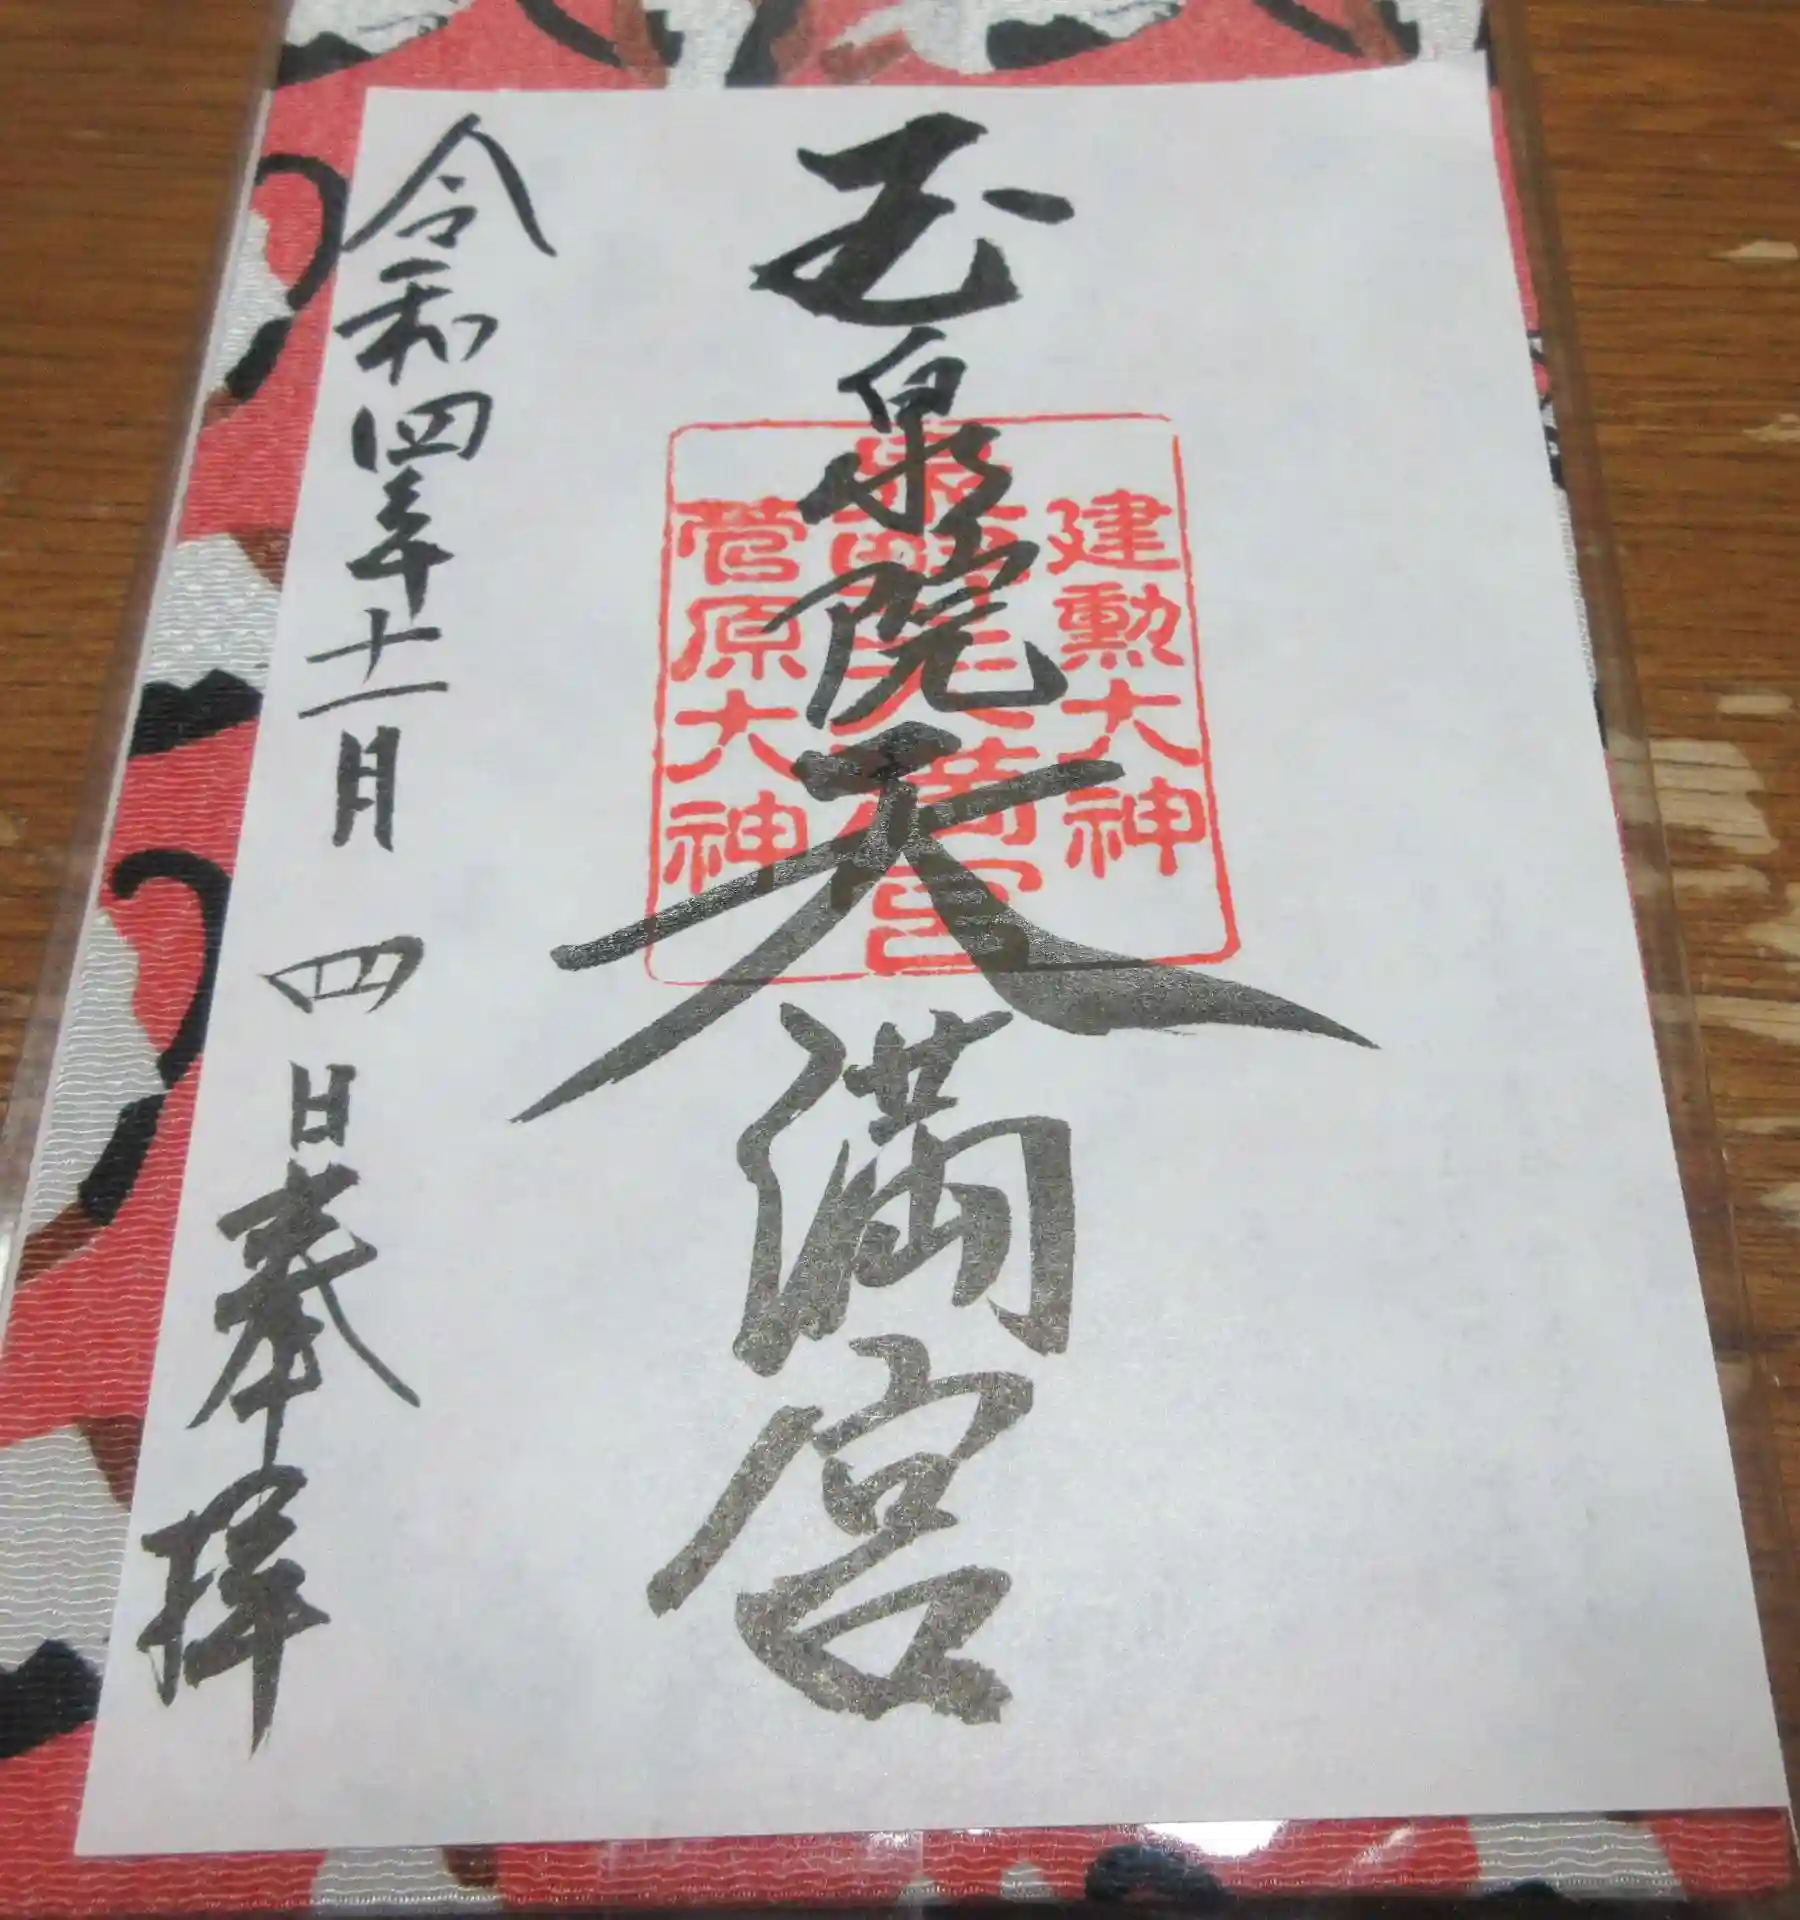 玉泉院天満宮
建勲大神
天満宮
菅原大神
令和四年十一月四日奉拝